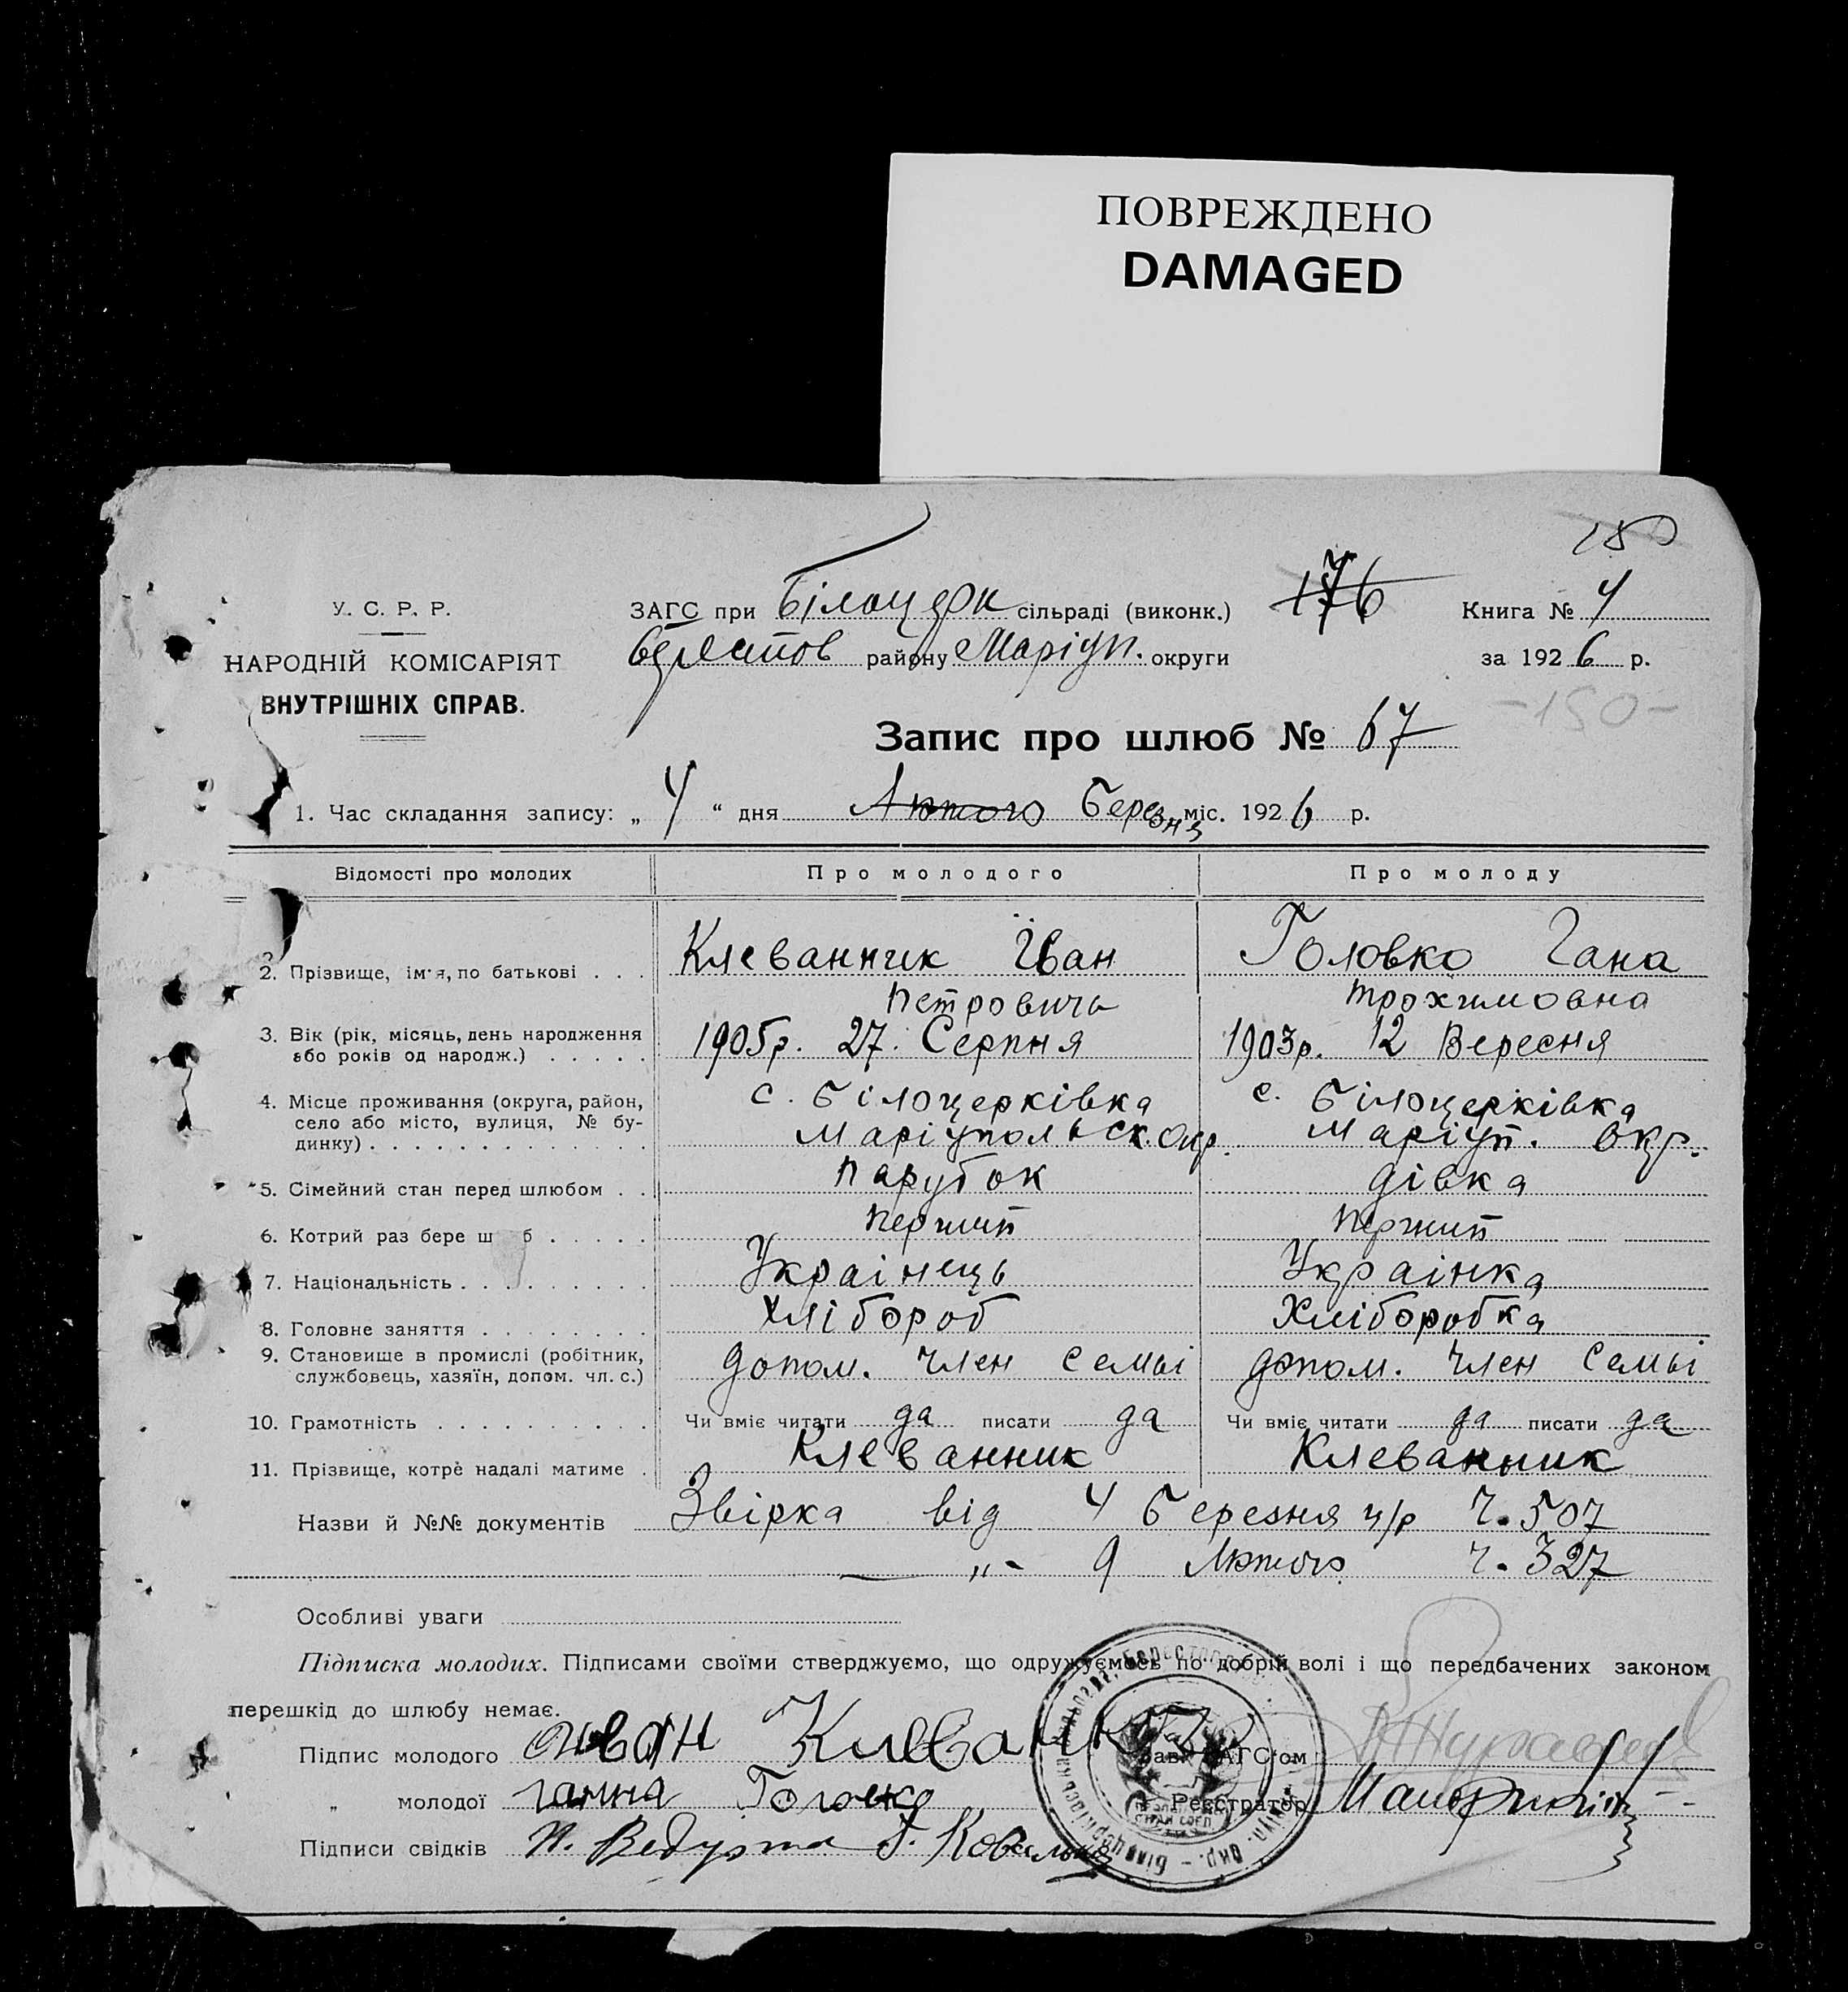 ПОВРЕЖДЕНО
DAMAGED
150
У. С. Р. Р.
НАРОДНІЙ КОМІСАРІЯТ
ВНУТРІШНІХ СПРАВ.
ЗАГС при Білоцерк сільраді (виконк.)
176
району Маріуп. округи
Книга № 4
за 1926 р.
-150-
Запис про шлюб № 67
1. Час складання запису: „ 4 “ дня Лютого Березня міс. 1926 р.
Відомості про молодих Про молодого Про молоду
2. Прізвище, ім'я, по батькові . . . Клеванник Їван Головко Гана
Петровичь Трохимовна
3. Вік (рік, місяць, день народження
або років од народж.) . . . . . 1905р. 27. Серпня 1903р. 12 Вересня
4. Місце проживання (округа, район, с. Білоцерківка с. Білоцерківка
село або місто, вулиця, № бу-
динку) . . . . . . . . . . . . . Маріупольск. Окр. Маріуп. Окр.
5. Сімейний стан перед шлюбом . . Парубок дівка
6. Котрий раз бере ш б . . . . .
7. Національність . . . . . . . . . Украінець Украінка
8. Головне заняття . . . . . . . . Хлібороб Хліборобка
9. Становище в промислі (робітник,
службовець, хазяїн, допом. чл. с.) допом. член семьі допом. член семьі
10. Грамотність . . . . . . . . . . Чи вміє читати да писати да Чи вміє читати да писати да
11. Прізвище, котрѐ надалі матиме . Клеванник Клеванник
Назви й №№ документів Звірка від 4 Березня ц/р Ч. 507
— „ - 9 Лютого ч. 327
Особливі уваги
Підписка молодих. Підписами своїми стверджуємо, що одружуємось по добрій волі і що передбачених законом
перешкід до шлюбу немає.
Підпис молодого Клеванник
Зав. ЗАГС'ом
„ молодої ганна
Реєстратор
Підписи свідків